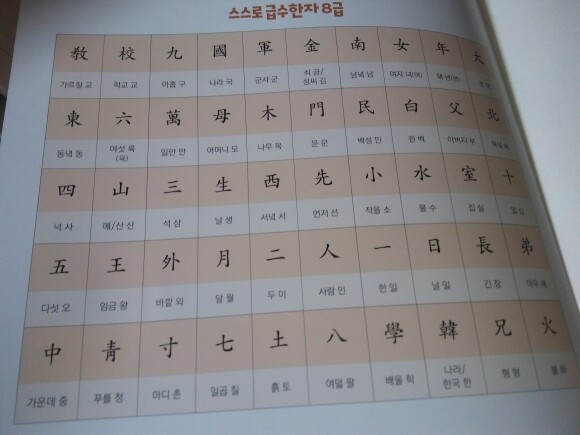 스스로 급수한자 8급
教 校 九 國 軍 金 南 女 年 大
가르칠 교 학교 교 아홉 구 나라 국 군사 군 쇠 금/성씨 김 남녘 남 여자 녀(여) 해 년(연)
東 六 萬 母 木 門 民 白 父 北
동녘 동 여섯 륙(육) 일만 만 어머니 모 나무 목 문 문 백성 민 흰 백 아버지 부
四 山 三 生 西 先 小 水 室 十
넉 사 메/산 산 석 삼 날 생 서녘 서 먼저 선 작을 소 물 수 집 실 열 십
五 王 外 月 二 人 一 日 長 弟
다섯 오 임금 왕 바깥 외 달 월 두 이 사람 인 한 일 날 일 긴 장 아우 제
中 靑 寸 七 土 八 學 韓 兄 火
가운데 중 푸를 청 마디 촌 일곱 칠 흙 토 여덟 팔 배울 학 나라/한국 한 형 형 불 화